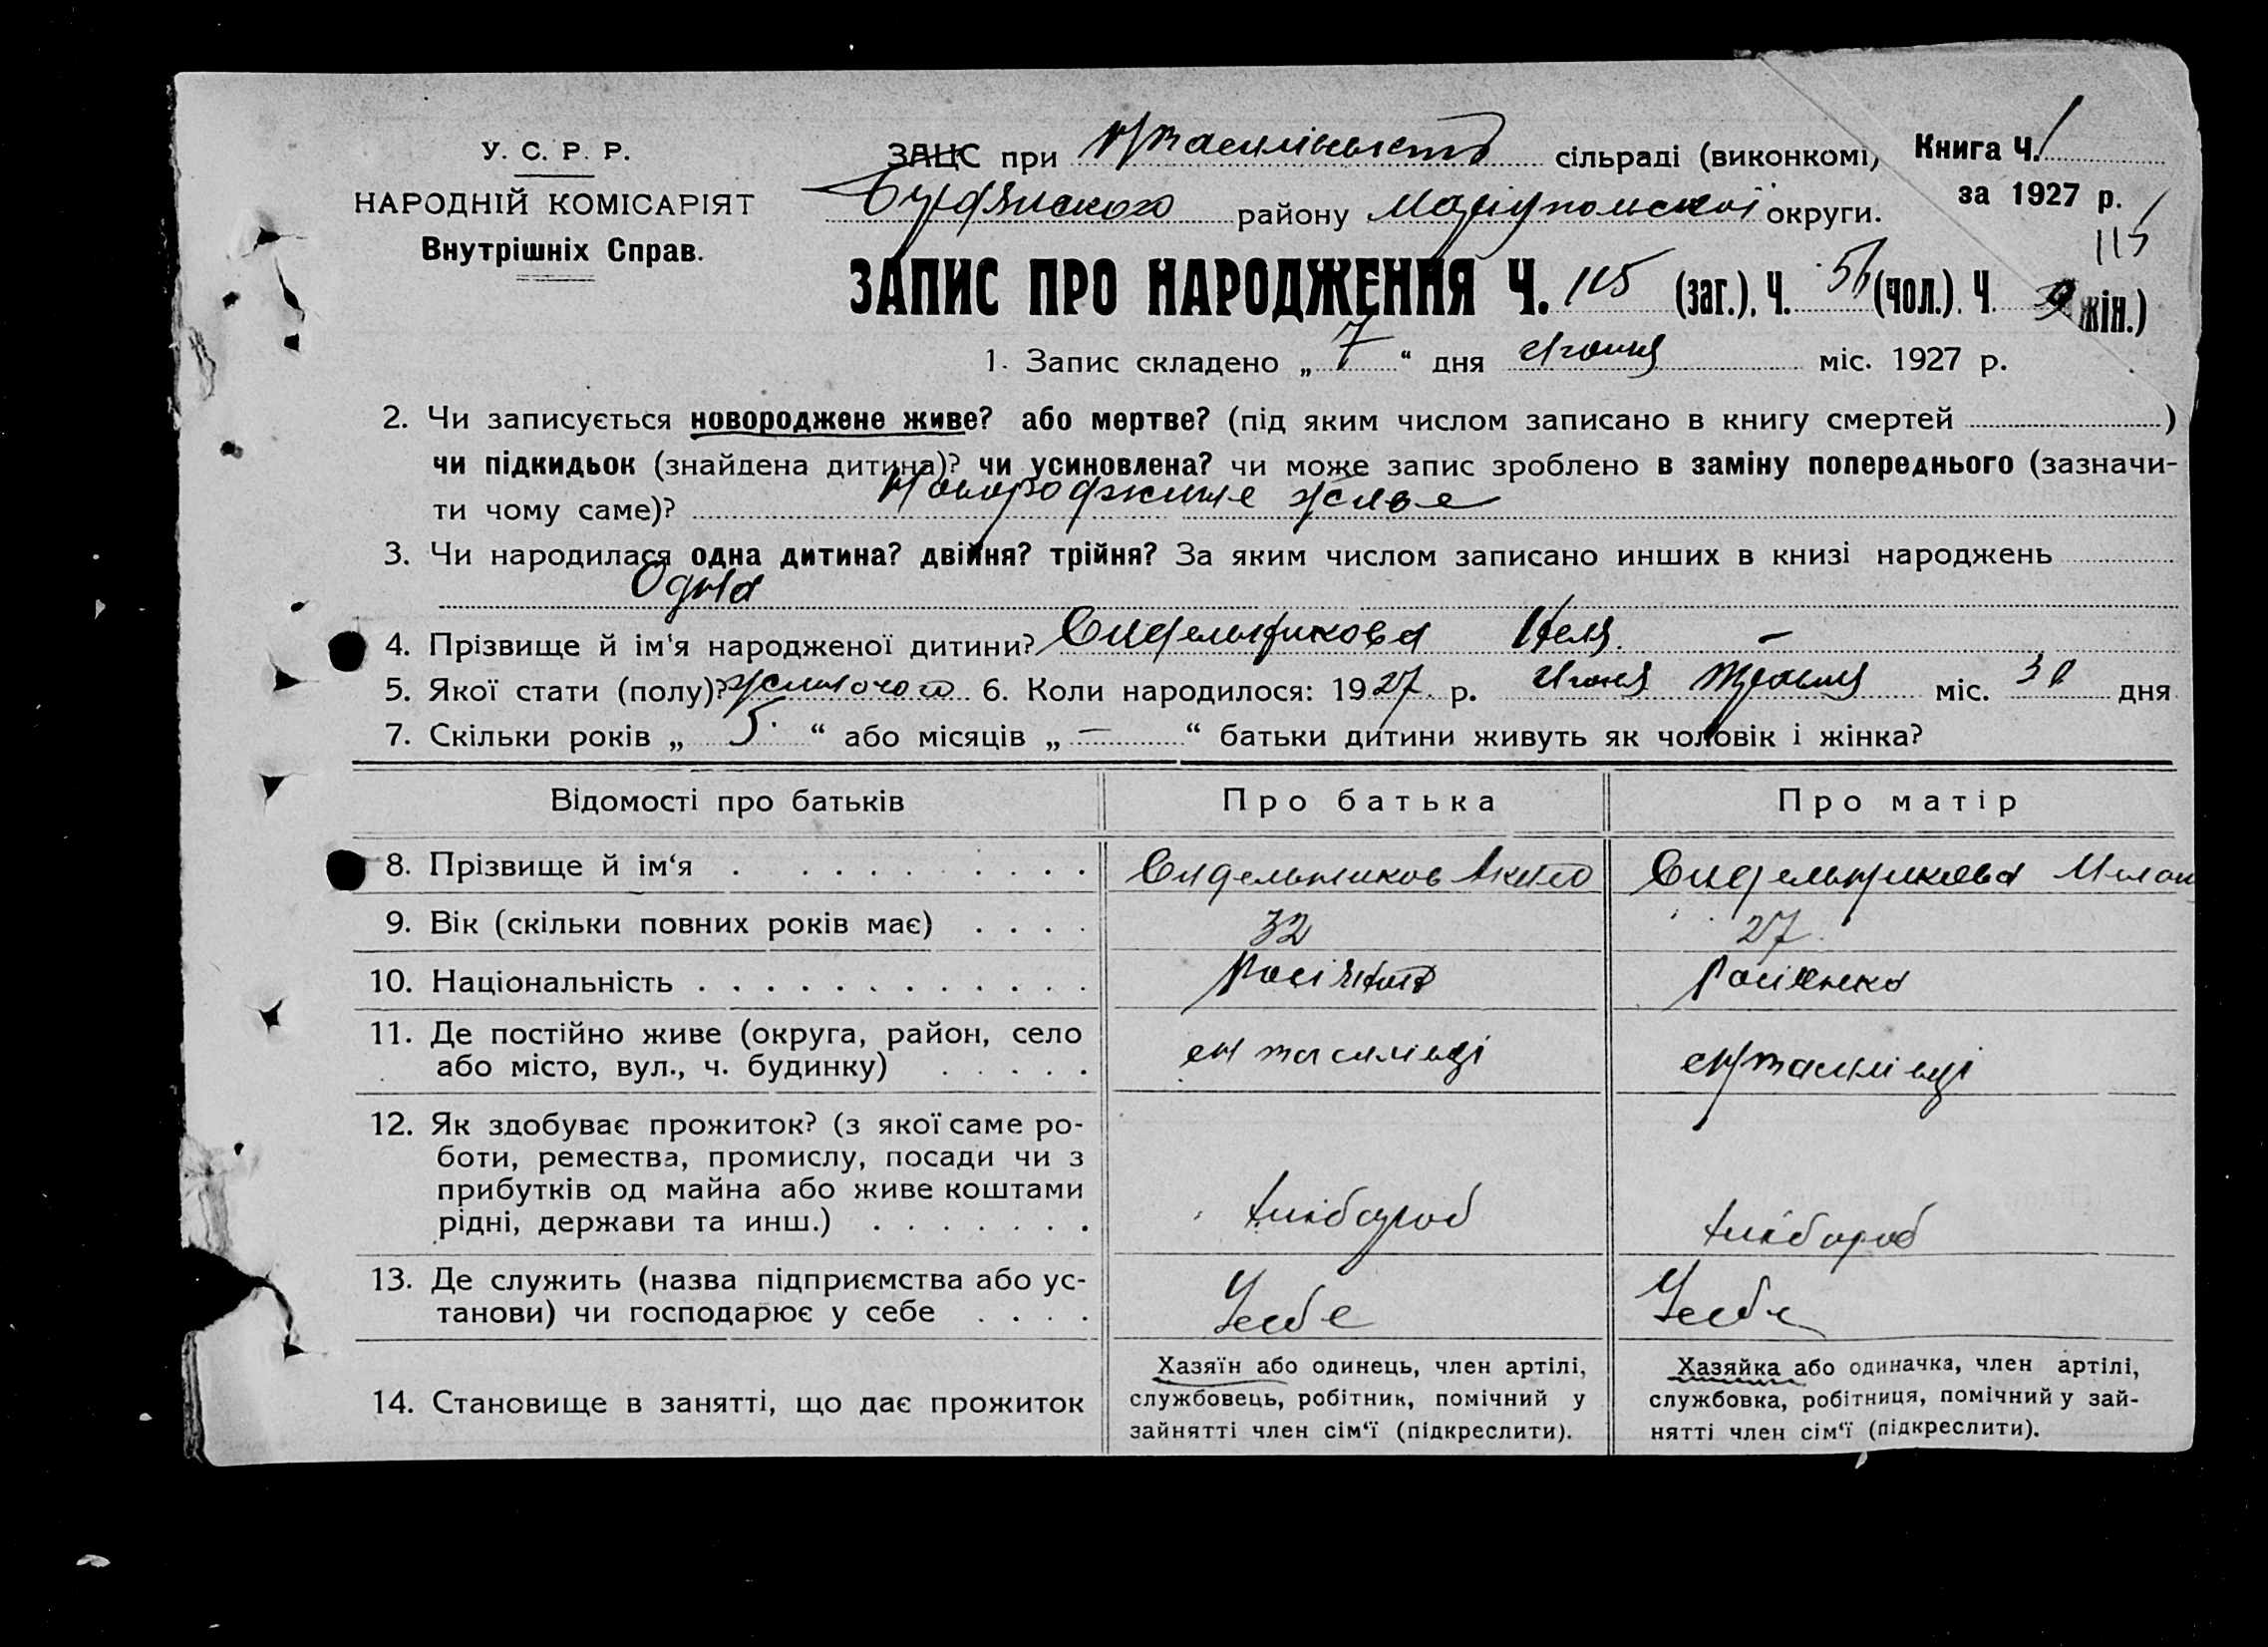 У. С. Р. Р.
НАРОДНІЙ КОМІСАРІЯТ
Внутрішніх Справ.
ЗАЦС при сільраді (виконкомі)
району Маріупольскої округи.
Книга Ч. 1
за 1927 р.
115
ЗАПИС ПРО НАРОДЖЕННЯ Ч. 115 (заг.), Ч. (чол.). Ч. (жін.)
1. Запис складено „ 7 “ дня міс. 1927 р.
2. Чи записується новороджене живе? або мертве? (під яким числом записано в книгу смертей )
чи підкидьок (знайдена дитина)? чи усиновлена? чи може запис зроблено в заміну попереднього (зазначи-
ти чому саме)? новороджене живе
3. Чи народилася одна дитина? двійня? трійня? За яким числом записано инших в книзі народжень
Одна
4. Прізвище й ім'я народженої дитини? Сидельникова Неля. –
5. Якої стати (полу)? жиночого 6. Коли народилося: 1927. р. міс. дня
7. Скільки років „ 5. “ або місяців „ – “ батьки дитини живуть як чоловік і жінка?
Відомості про батьків Про батька Про матір
8. Прізвище й ім‘я Сидельников Сидельникова
9. Вік (скільки повних років має) 32 27
10. Національність
11. Де постійно живе (округа, район, село
або місто, вул., ч. будинку)
12. Як здобуває прожиток? (з якої саме ро-
боти, ремества, промислу, посади чи з
прибутків од майна або живе коштами
рідні, держави та инш.) хлібороб хлібороб
13. Де служить (назва підприємства або ус-
танови) чи господарює у себе У себе У себе
14. Становище в занятті, що дає прожиток
Хазяїн або одинець, член артілі,
службовець, робітник, помічний у
зайнятті член сім‘ї (підкреслити).
Хазяйка або одиначка, член артілі,
службовка, робітниця, помічний у зай-
нятті член сім‘ї (підкреслити).